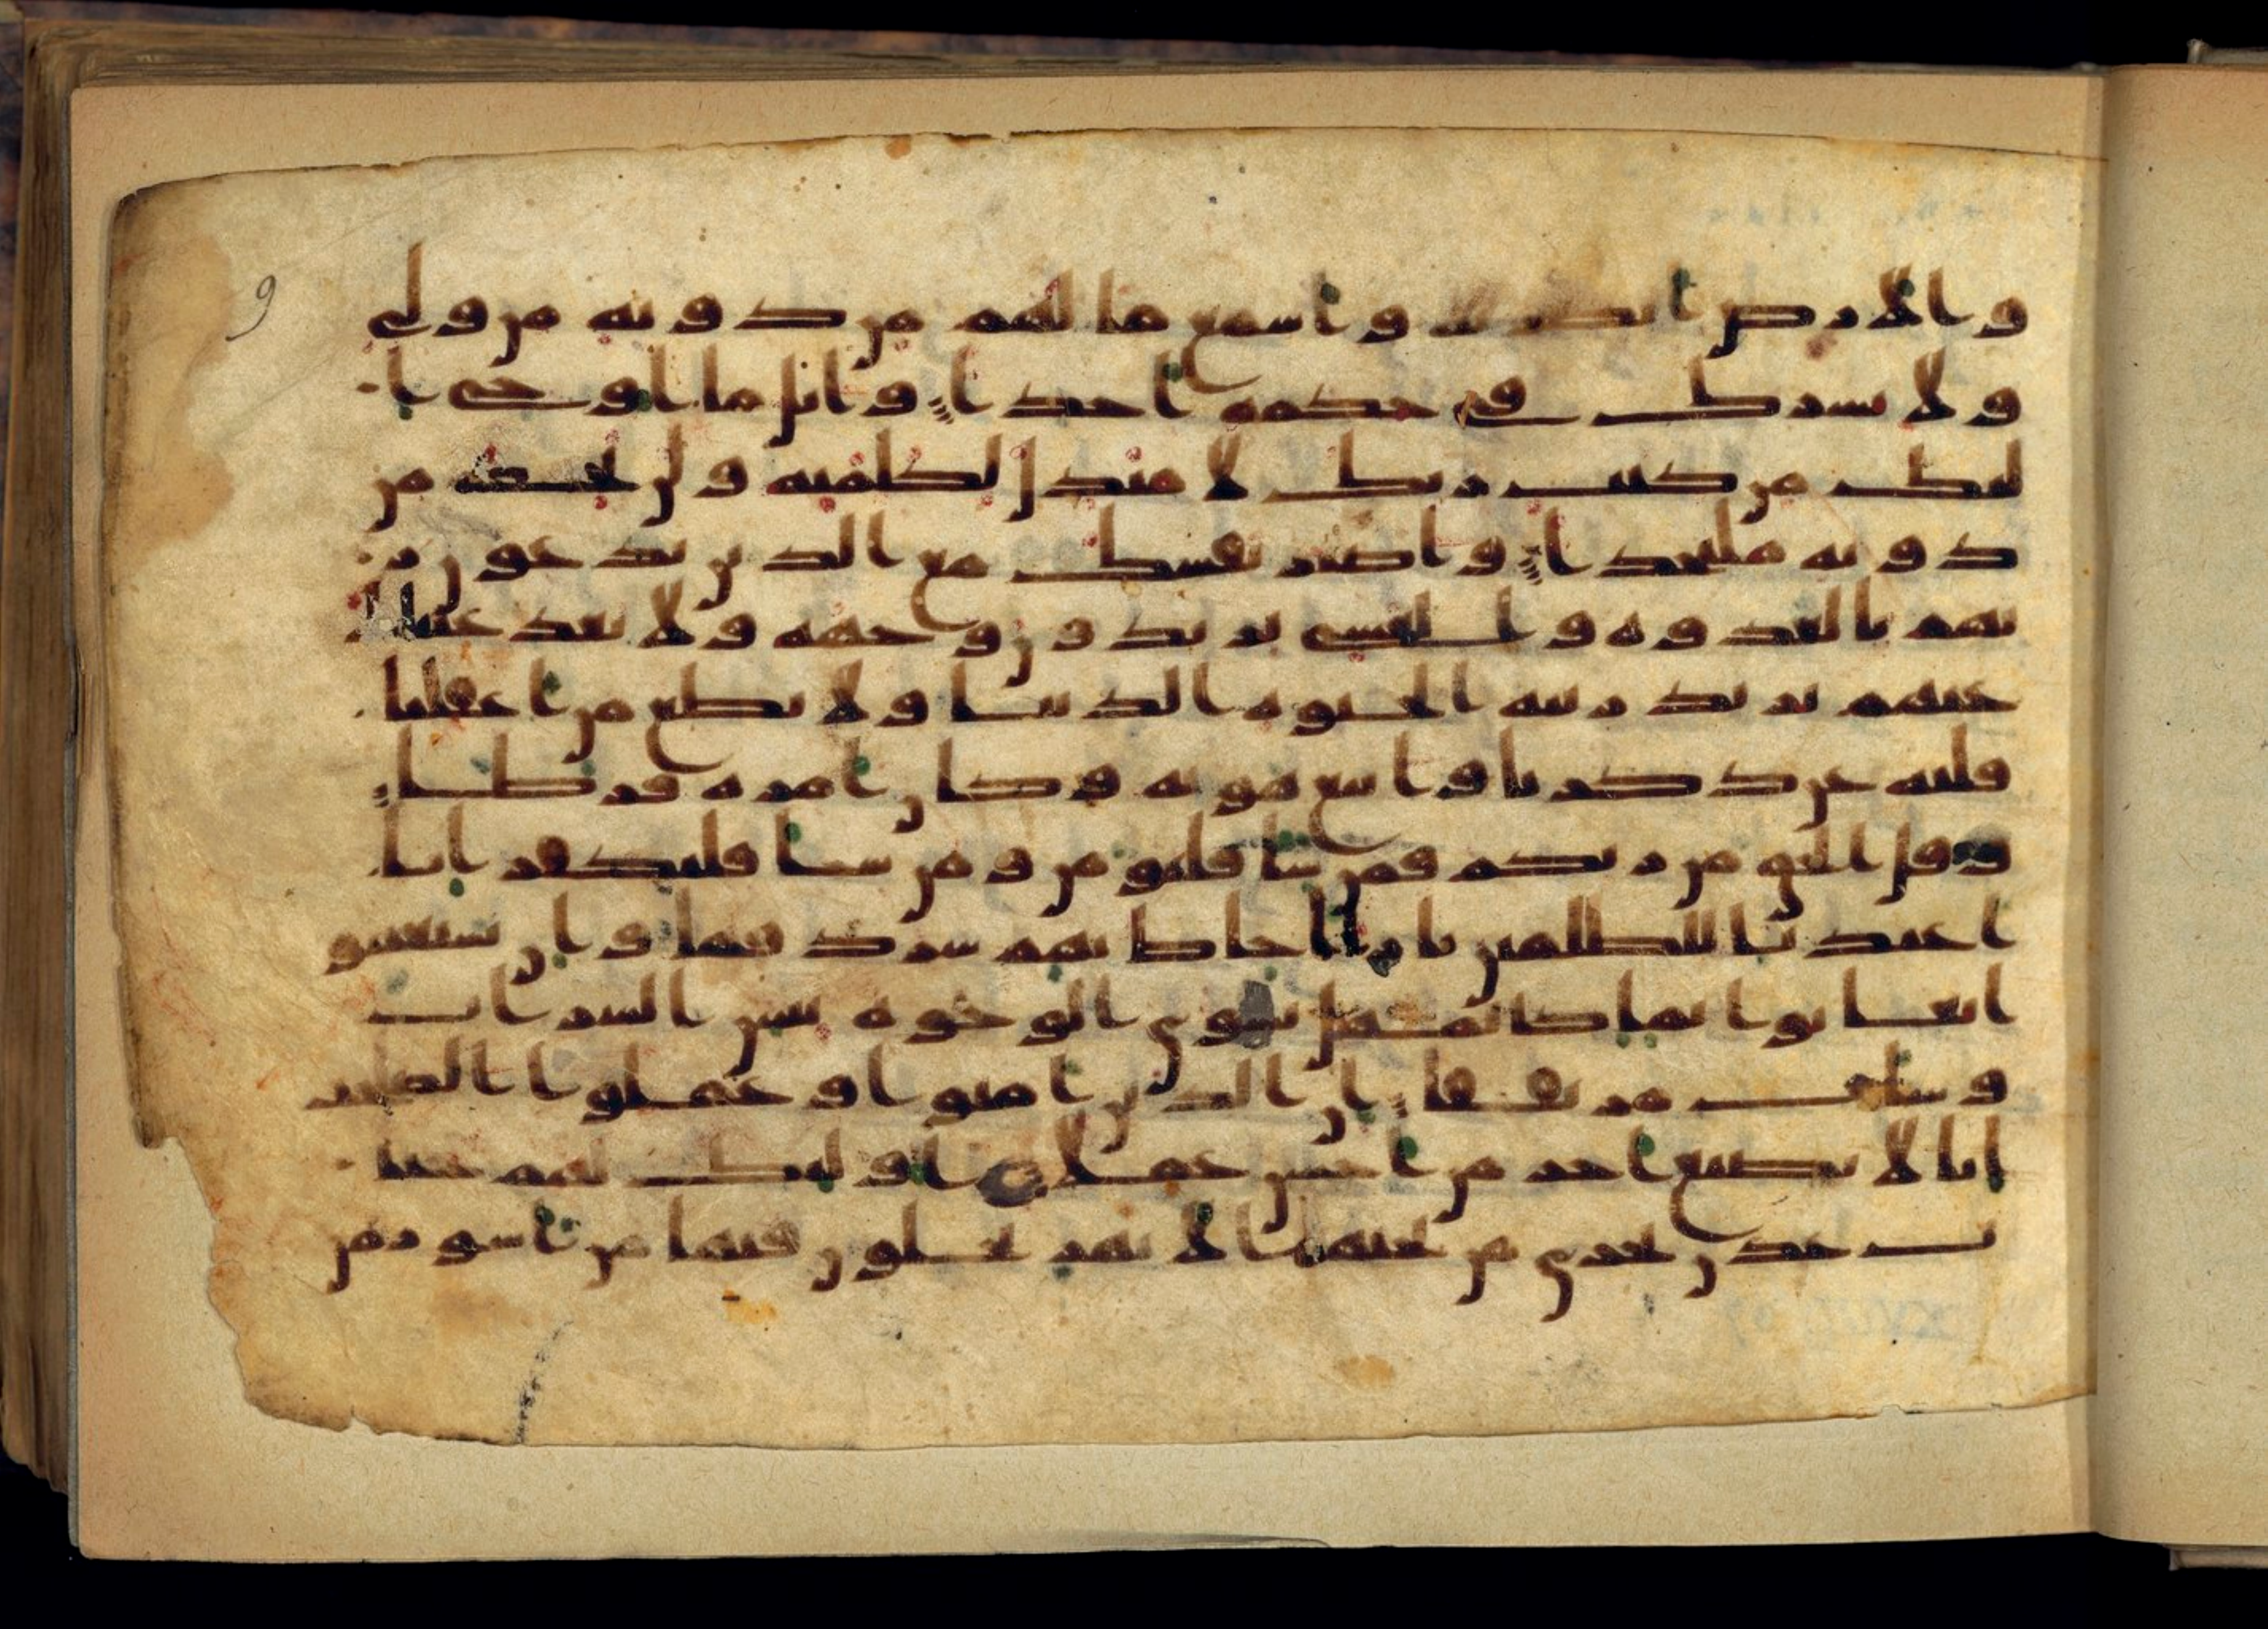 9
والارض ابصر به واسمع ما لهم من دونه من ولي
ولا يشرك في حكمه احدا واتل ما اوحي ا
ليك من كتب ربك لا مبدل لكلمته ولن تجد من
دونه ملتحدا واصبر نفسك مع الذين يدعون ر
بهم بالغدوه والعشي يريدون وجهه ولا تعد عيناك
عنهم تريد زينه الحيوه الدنيا ولا تطع من اغفلنا
قلبه عن ذكرنا واتبع هويه وكان امره فرطا
وقل الحق من ربكم فمن شا فليومن ومن شا فليكفر انا
اعتدنا للظلمين نارا احاط بهم سردقها وان يستغيثو
ا يغاثوا بما كالمهل يشوي الوجوه بئس الشراب
وسات مرتفقا ان الذين امنوا وعملوا الصلحت
انا لا نضيع اجر من احسن عملا اوليك لهم جنا
ت عدن تجري من تحتهم الانهر يحلون فيها من اسور من